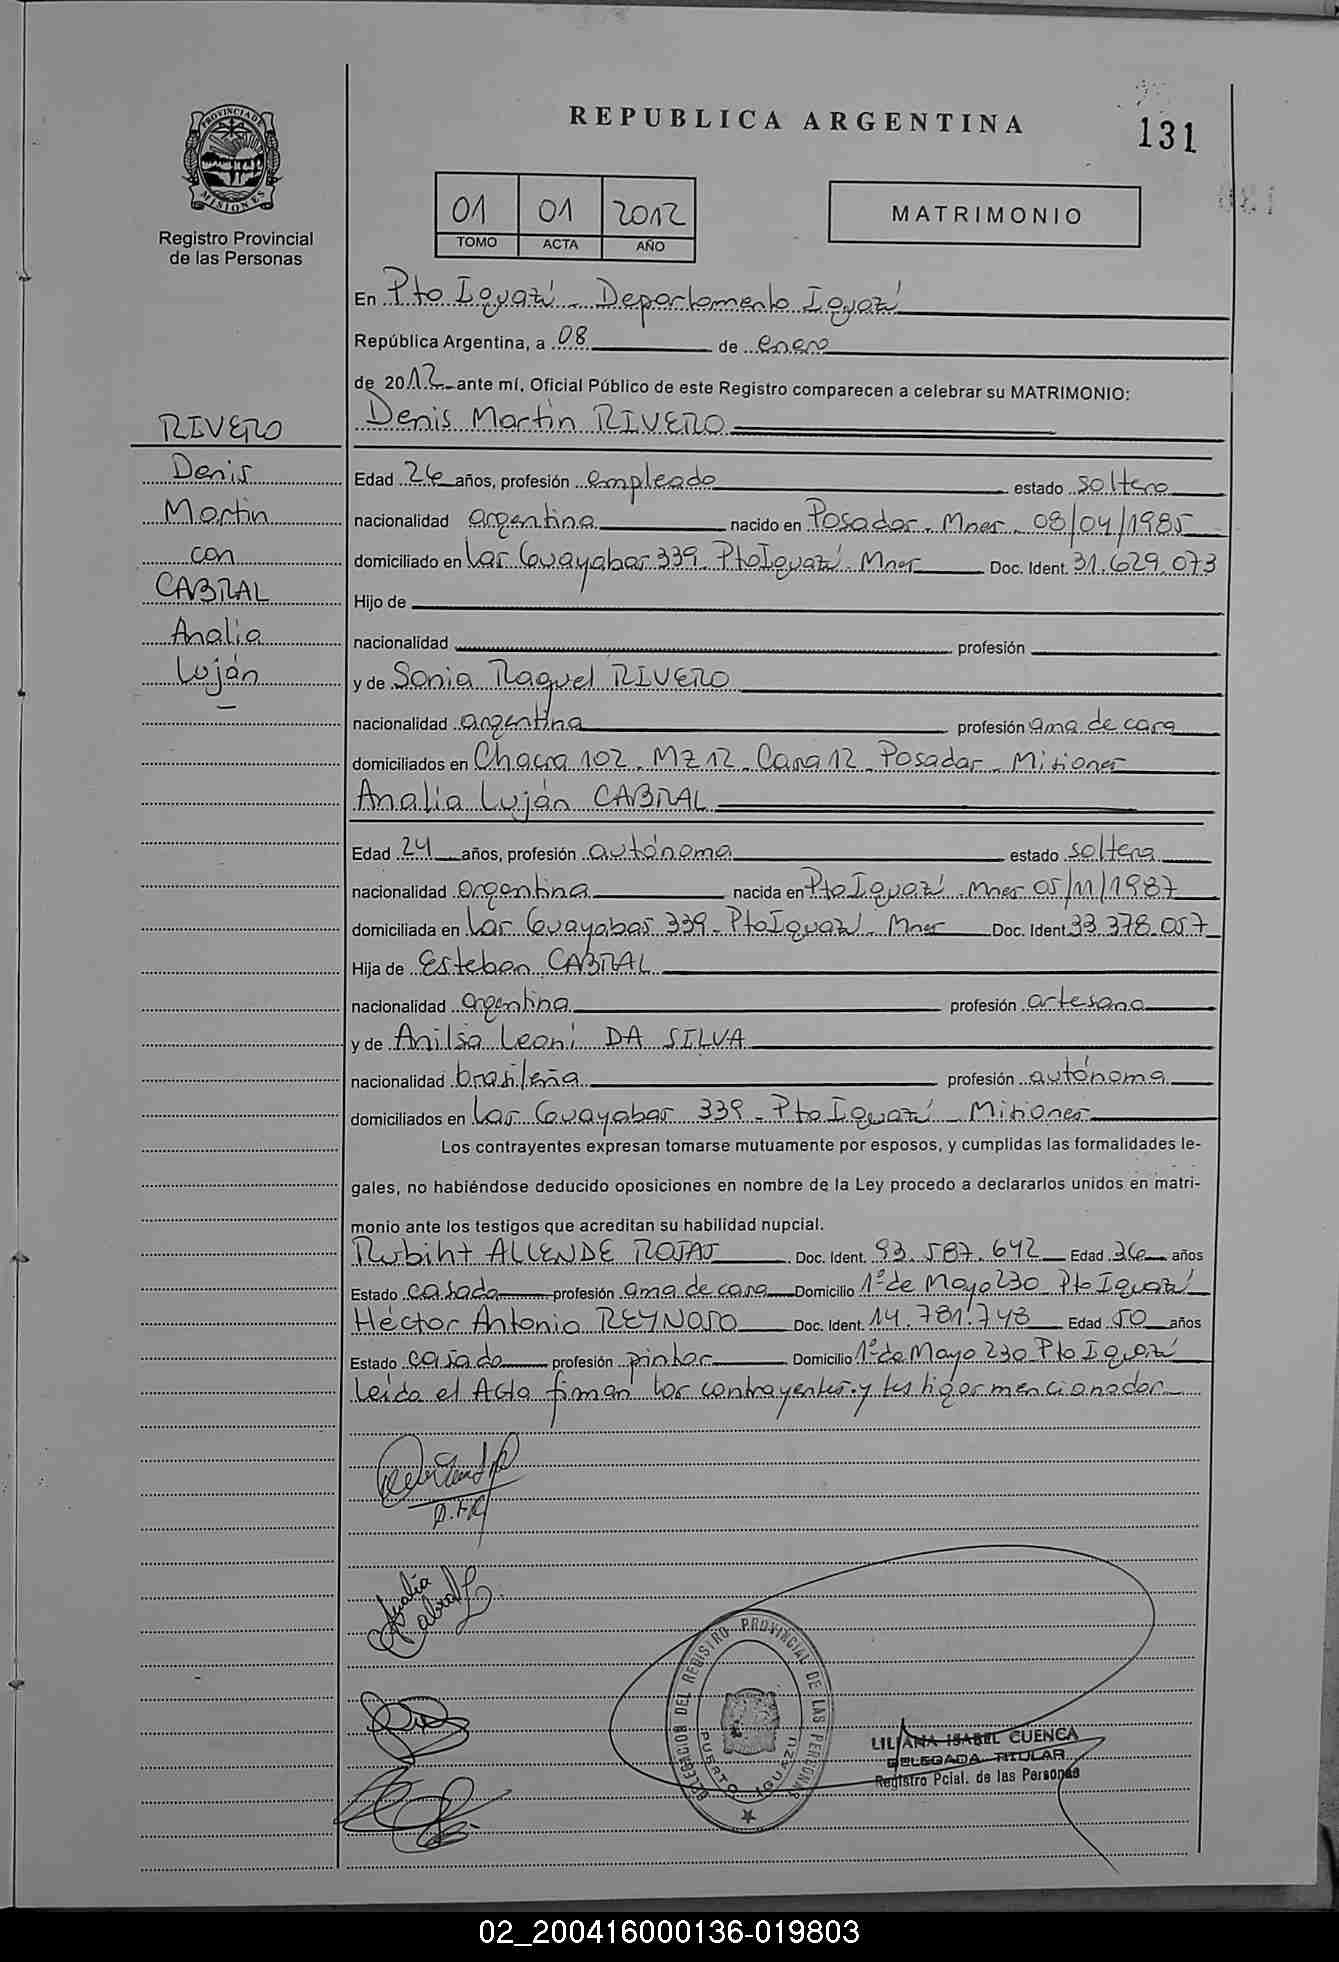 PROVINCIA DE MISIONES
Registro Provincial
de las Personas
REPUBLICA ARGENTINA
131
01 01 2012
TOMO ACTA AÑO
MATRIMONIO
En Pto Iguazú - Departamento Iguazú
República Argentina, a 08 de enero
de 2012 ante mí, Oficial Público de este Registro comparecen a celebrar su MATRIMONIO:
Denis Martin RIVERO
RIVERO
Denis
Martin
con
CABRAL
Analia
Luján
Edad 26 años, profesión empleado estado soltero
nacionalidad argentina nacido en Posadas - Mnes - 08/04/1985
domiciliado en las Guayabas 339 - Pto Iguazú - Mnes Doc. Ident. 31.629.073
Hijo de
nacionalidad profesión
y de Sonia Raquel RIVERO
nacionalidad argentina profesión ama de casa
domiciliados en Chacra 102 - MZ 12 - Casa 12 - Posadas - Misiones
Analia Luján CABRAL
Edad 24 años, profesión autónoma estado soltera
nacionalidad argentina nacida en Pto Iguazú - Mnes 05/11/1987
domiciliada en las Guayabas 339 - Pto Iguazú - Mnes Doc. Ident. 33.378.057
Hija de Esteban CABRAL
nacionalidad argentina profesión artesano
y de Anilsa Leoni DA SILVA
nacionalidad brasileña profesión autónoma
domiciliados en las Guayabas 339 - Pto Iguazú - Misiones
Los contrayentes expresan tomarse mutuamente por esposos, y cumplidas las formalidades le-
gales, no habiéndose deducido oposiciones en nombre de la Ley procedo a declararlos unidos en matri-
monio ante los testigos que acreditan su habilidad nupcial.
Rubiht ALLENDE ROJAS Doc. Ident. 93.587.642 Edad 36 años
Estado casada profesión ama de casa Domicilio 1º de Mayo 230 Pto Iguazú
Héctor Antonio REYNOSO Doc. Ident. 14.781.748 Edad 50 años
Estado casado profesión pintor Domicilio 1º de Mayo 230 Pto Iguazú
Leída el Acta firman los contrayentes y testigos mencionados
Analia
Cabral
DELEGACION DEL REGISTRO PROVINCIAL DE LAS PERSONAS
PUERTO IGUAZU
LILIANA ISABEL CUENCA
DELEGADA TITULAR
Registro Pcial. de las Personas
02_200416000136-019803